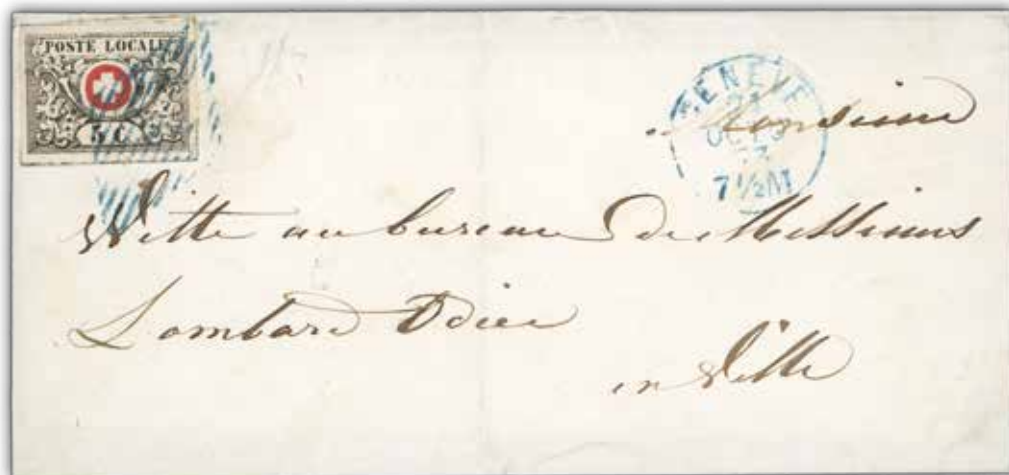 POSTE LOCALE
5 C.
GENEVE
OCT
7 ½ M
Monsieur
Witte au bureau de Messieurs
Lombard Odier
en Ville